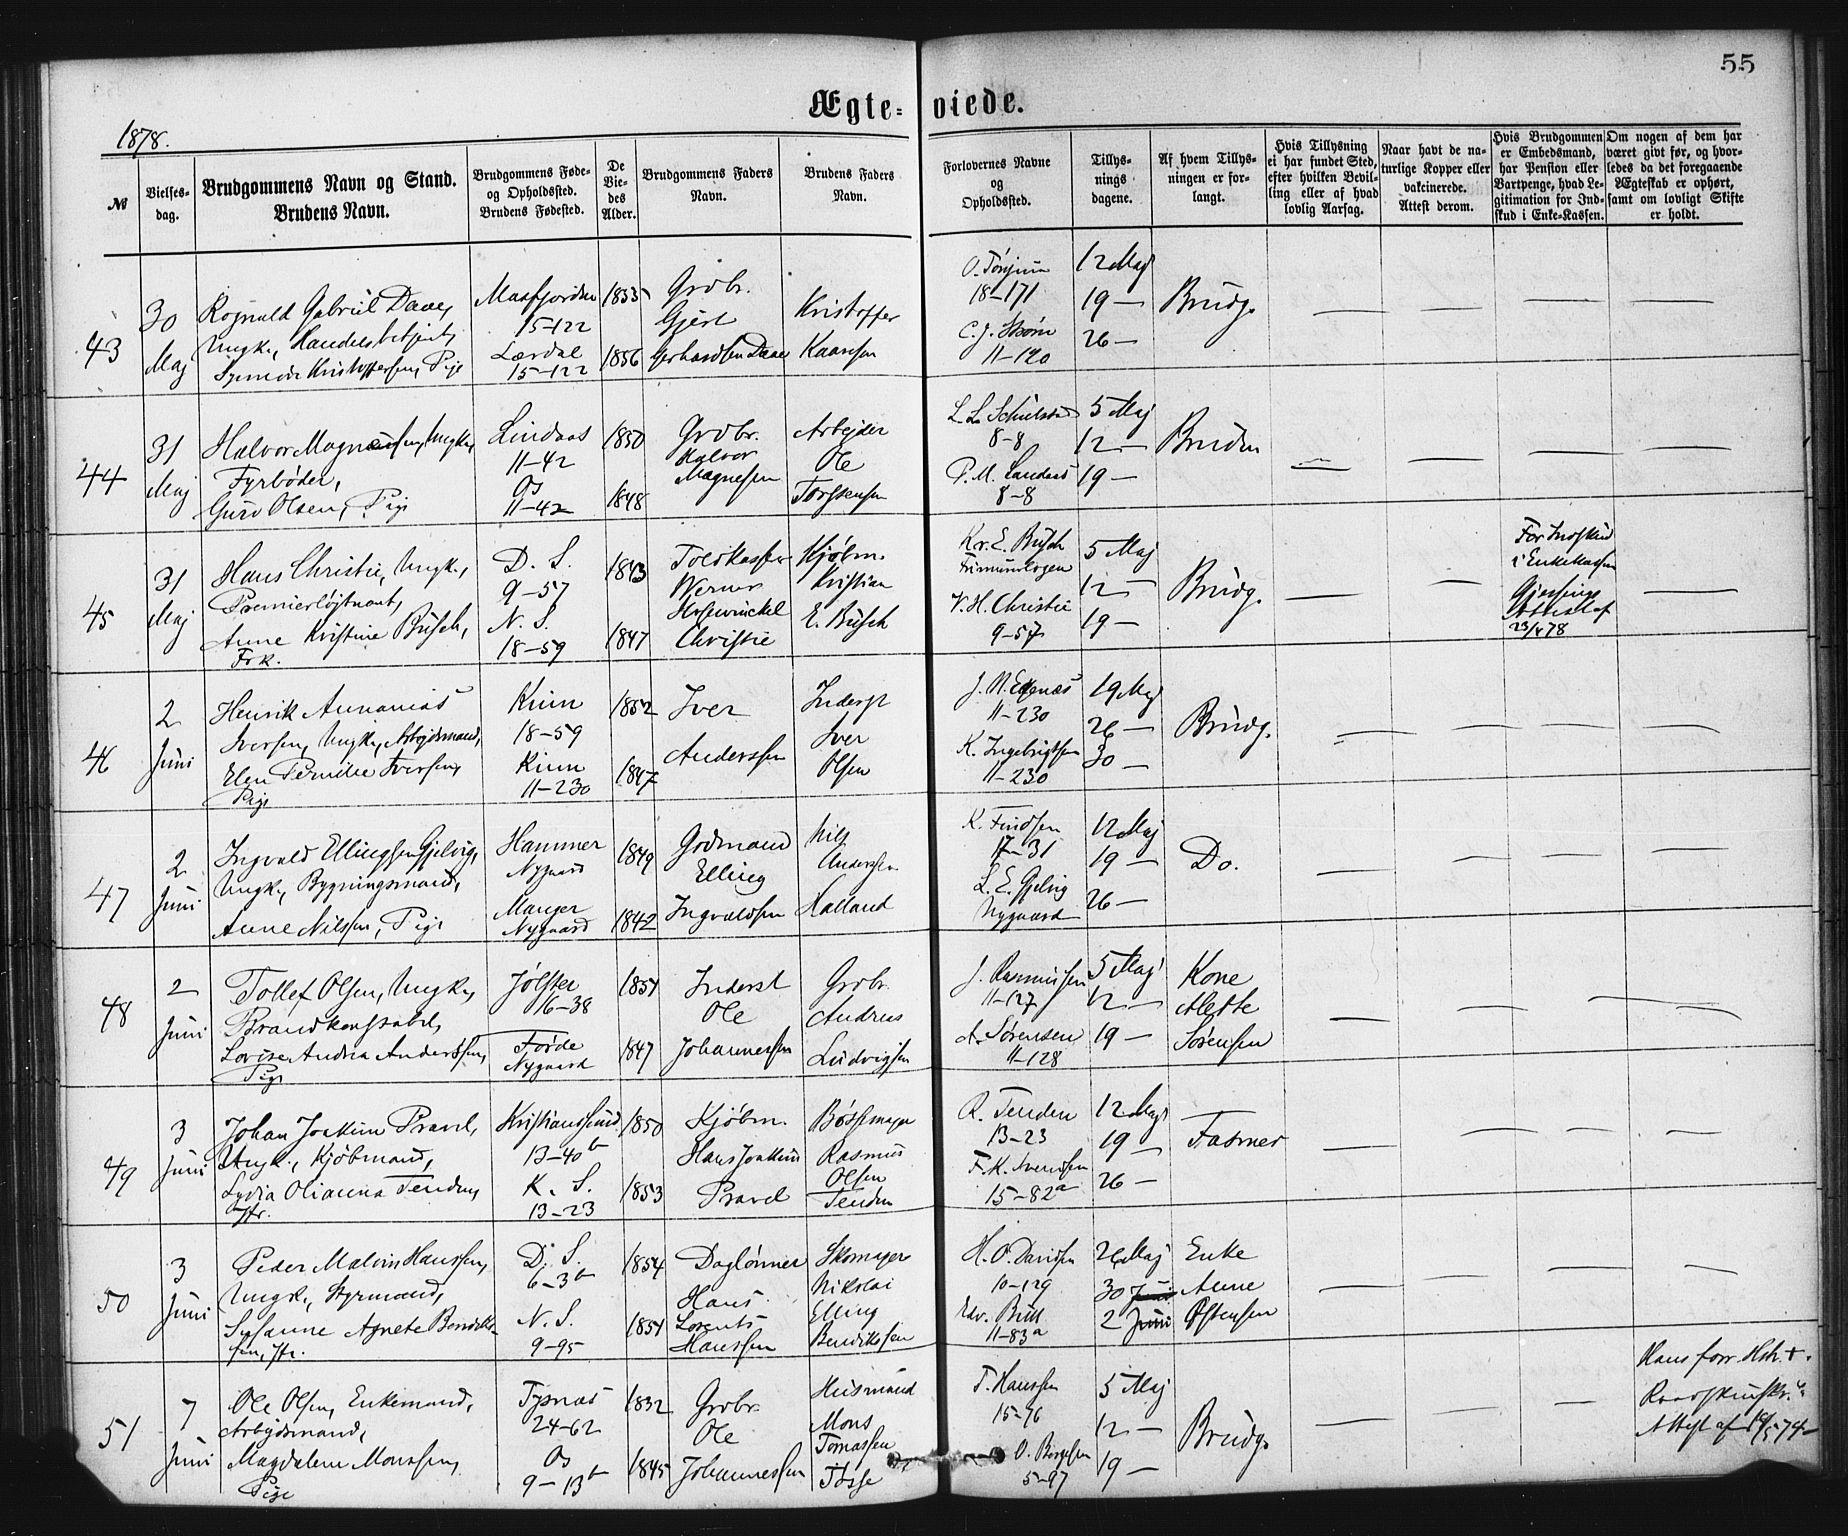 55
Ægte-viede.
1878.
№
Vielses-
dag.
Brudgommens Navn og Stand.
Brudens Navn.
Brudgommens Føde-
og Opholdssted.
Brudens Fødested.
De
Vie-
des
Alder.
Brudgommens Faders
Navn.
Brudens Faders
Navn.
Forlovernes Navne
og
Opholdssted.
Tillys-
nings
dagene.
Af hvem Tillys-
ningen er for-
langt.
Hvis Tillysning
ei har fundet Sted,
efter hvilken Bevil-
ling eller af hvad
lovlig Aarsag.
Naar havt de na-
turlige Kopper eller
vakcinerede.
Attest derom.
Hvis Brudgommen
er Embedsmand,
har Pension eller
Vartpenge, hvad Le-
gitimation for Ind-
skud i Enke-Kassen.
Om nogen af dem har
været givt før, og hvor-
ledes da det foregaaende
Ægteskab er ophørt,
samt om lovligt Skifte
er holdt.
43
30
Maj
Rognald Gabriel Daae,
Ungk., Handelsbetjent,
Kristoffersen, Pige
Masfjorden
15-122
Lærdal
15-122
1855
1856
Grdbr.
Gjert
Gerhardsen Daae
Kristoffer
Kaaresen
O. Tønjum
18-171
C. J. Strøm
11-120
12 Maj
19 —
26 —
Brudg.
44
31
Maj
Halvor Magnesen, Ungk.,
Fyrbøder,
Guro Olsen, Pige
Lindaas
11-42
Os
11-42
1850
1848
Grdbr.
Halvor
Magnesen
Arbejder
Ole
Torgersen
8-8
P. M. Landaas
8-8
5 Maj
12 —
19 —
Bruden
45
31
Maj
Hans Christie, Ungk.,
Premierløjtnant,
Anne Kristine Busch,
Frk.
D. S.
9-57
N. S.
18-59
1843
1847
Toldkasserer
Werner
Hosewinckel
Christie
Kjøbm.
Kristian
E. Busch
Kr. E. Busch
Frimurerlogen
V. H. Christie
9-57
5 Maj
12 —
19 —
Brudg.
For Indskud
i Enkekassen
Gjensings
Attest af
23/4 78
46
2
Juni
Henrik Annanias
Iversen, Ungk., Arbejdsmand,
Elen Pernilie Iversen,
Pige
Kinn
18-59
Kinn
11-230
1852
1847
Iver
Anderssen
Inderst
Iver
Olsen
J. N. Egenæs
11-230
K. Ingebrigtsen
11-230
19 Maj
26 —
30 —
Brudg.
47
2
Juni
Ingvald Ellingsen Gjelvig,
Ungk., Bygningsmand,
Anne Nilssen, Pige
Hammer
Nygaard
Manger
Nygaard
1849
1842
Grdmand
Elling
Ingvaldsen
Nils
Anderssen
Halland
K. Findsen
17-31
L. E. Gjelvig
Nygaard
12 Maj
19 —
26 —
Do.
48
2
Juni
Tollef Olsen, Ungk.,
Brandkonstabel,
Lovise Andrea Anderssen,
Pige
Jølster
16-38
Førde
Nygaard
1851
1847
Inderst
Ole
Johannessen
Grdbr.
Andreas
Ludvigsen
J. Rasmussen
11-127
A. Sørensen
11-128
5 Maj
12 —
19 —
Kone
Alette
Sørensen
49
3
Juni
Johan Joakim Pravel,
Ungk., Kjøbmand,
Lydia Olianna Tenden,
Jfr.
Kristianssund
13-40b
K. S.
13-23
1850
1853
Kjøbm.
Hans Joakim
Pravel
Bødtmager
Rasmus
Olsen
Tenden
R. Tenden
13-23
F. K. Svendsen
15-82a
12 Maj
19 —
26 —
Fasmer
50
3
Juni
Peder Malvin Hanssen,
Ungk., Styrmand,
Susanne Agnete Bendik-
sen, Jfr.
D. S.
6-3b
N. S.
9-95
1854
1851
Daglønner
Hans
Lorents
Hanssen
Skomager
Nikolai
Elling
Bendiksen
H. O. Davidsen
10-129
Edv. Brill
11-83a
26 Maj
30
2 Juni
Enke
Anne
Østensen
51
7
Juni
Ole Olsen, Enkemand,
Arbejdsmand,
Magdalene Monssen,
Pige
Tysnæs
24-62
Os
9-13b
1832
1845
Grdbr.
Ole
Johannessen
Husmand
Mons
Tomassen
Tøsse
T. Hanssen
15-76
O. Børgesen
5-97
5 Maj
12 —
19 —
Brudg.
Hans forr. Hstr. +.
Attest af 19/5 74